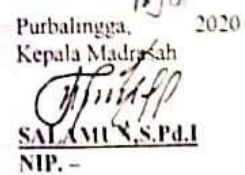 Purbalingga, 2020
Kepala Madrasah
SALAMUN,S.Pd.I
NIP. –